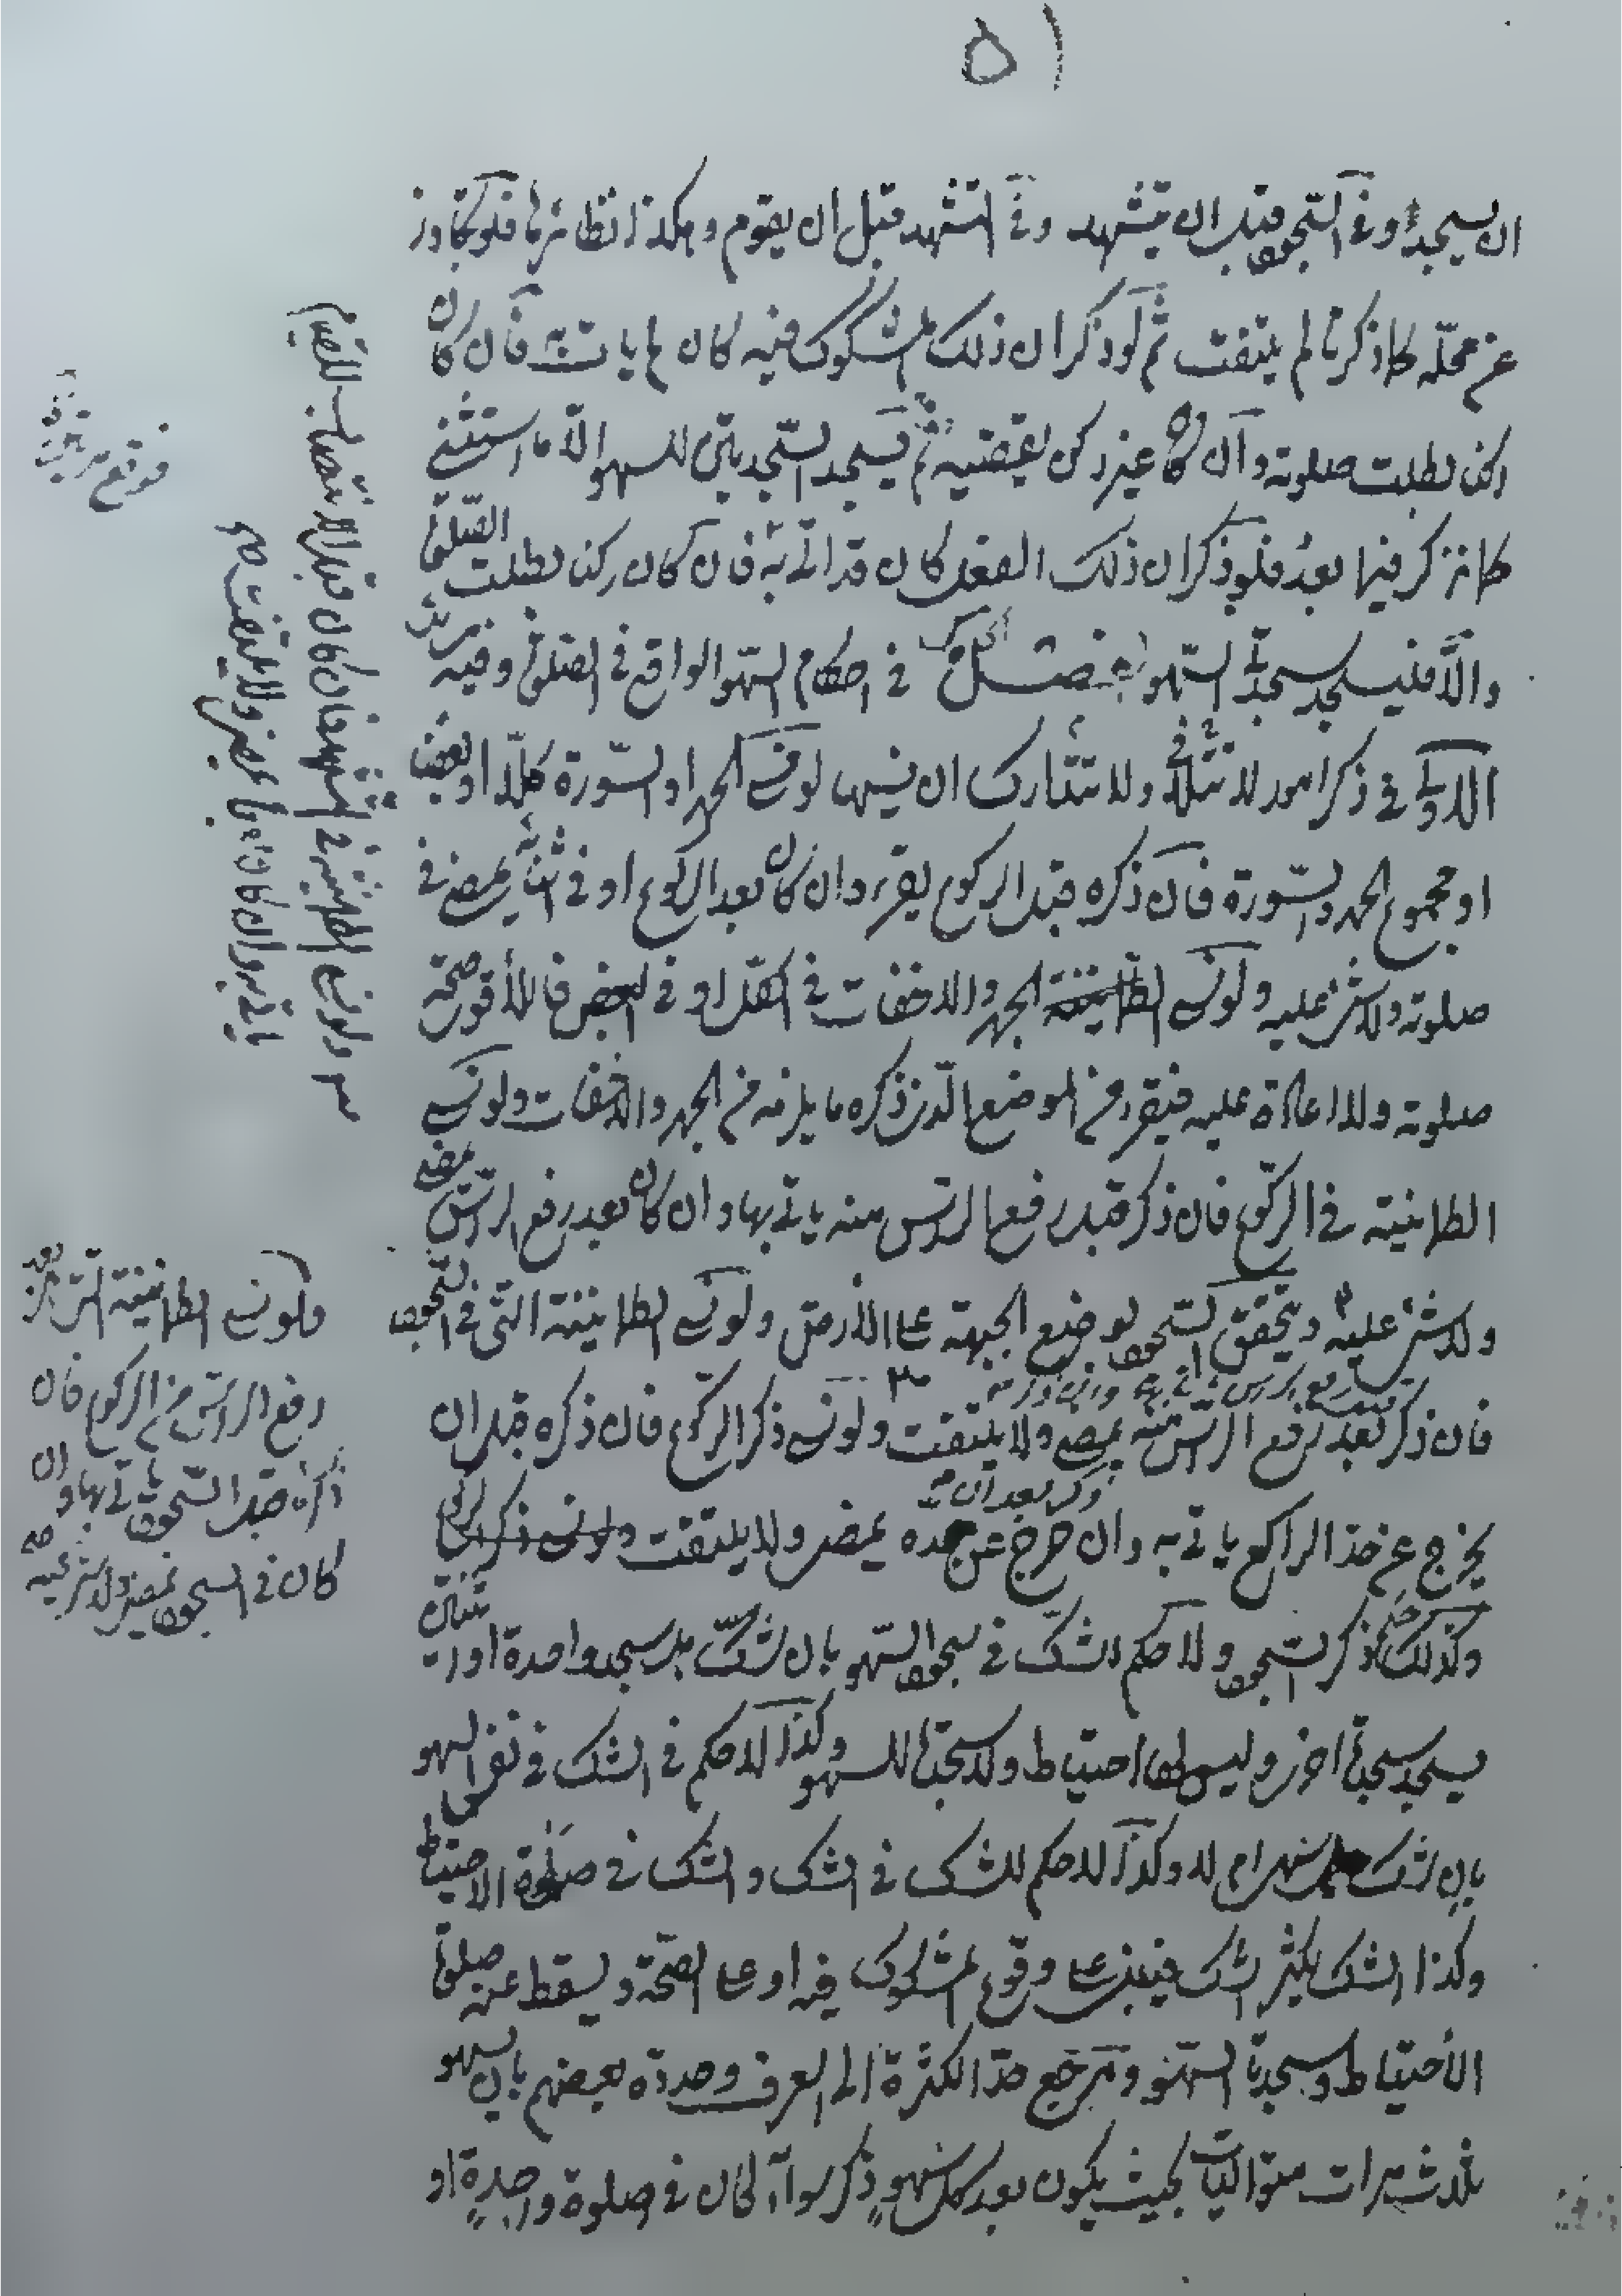 ٥١
ان يسجد وفي السجود قبل ان يتشهد وفي التشهد قبل ان يقوم وهكذا نظائرها فلو تجاوز
عن محلّه كما ذكرنا لم يلتفت ثم لو ذكر ان ذلك المشكوك فيه كان لم يات به فان كان
ركنا بطلت صلوته وان كان غير ركن يقضيه ثم يسجد السجدتين للسهو الّا ما استثنى
كما نذكر فيها بعد فلو ذكر ان ذلك الفعل كان قد اتى به فان كان ركنا بطلت الصّلوة
والّا فليسجد سجدتي السّهو فصل في احكام السّهو الواقع في الصّلوة وفيه
الاولى في ذكر امور لا ولا تتدارك ان نسيها لو نسى الحمد او السّورة كلّا او بعضا
او مجموع الحمد والسّورة فان ذكره قبل الركوع يقرء وان كان بعد الركوع او في اثنائه يمضي في
صلوته ولا شئ عليه ولو نسى الطمانينة الجهر والاخفات في الكل او في البعض فالأقوى صحة
صلوته ولا اعادة عليه فيقرء من الموضع الّذي ذكره ما يلزمه من الجهر والاخفات ولو نسى
الطمانينة في الركوع فان ذكر قبل رفع الراس منه ياتي بها وان كان بعد رفع الراس يمضي
ولا شئ عليه ويتحقق السجود بوضع الجبهة على الأرض ولو نسى الطمانينة التي في السجود
فان ذكر بعد رفع الراس منه يمضي ولا يلتفت ولو نسى ذكر الركوع فان ذكره قبل ان
يخرج عن حد الراكع ياتي به وان خرج عن حده يمضي ولا يلتفت ولو نسى ذكر
وكذلك حكم ذكر السجود ولا حكم للشك في سجود السّهو بان شكّ هل سجد واحدة او
يسجد سجدة اخرى وليس لها احتياط ولا سجدتا للسهو وكذا لا حكم في الشك في نفس السهو
بان شك هل سهى ام لا وكذا لا حكم للشك في الشك والشك في صلوة الاحتياط
وكذا الشك لكثير الشك فيبني على وقوع المشكوك فيه او على الصّحّة ويسقط عنه صلوة
الأحتياط وسجدتا السّهو ويرجع حدّ الكثرة الى العرف وحدده بعضهم بان يسهو
ثلاث مرات متواليات بحيث يكون بعد كل سهو ذكر سواء كان في صلوة واحدة او
ولو نسى الطمانينة في التشهد فان كان قبل الانتصاب للقيام
ياتي بها وان كان
فلو نسى الطمانينة التي بعد
رفع الراس من الركوع فان
ذكره قبل السّجود ياتي بها وان
كان في السجود يمضي ولا شئ عليه صح